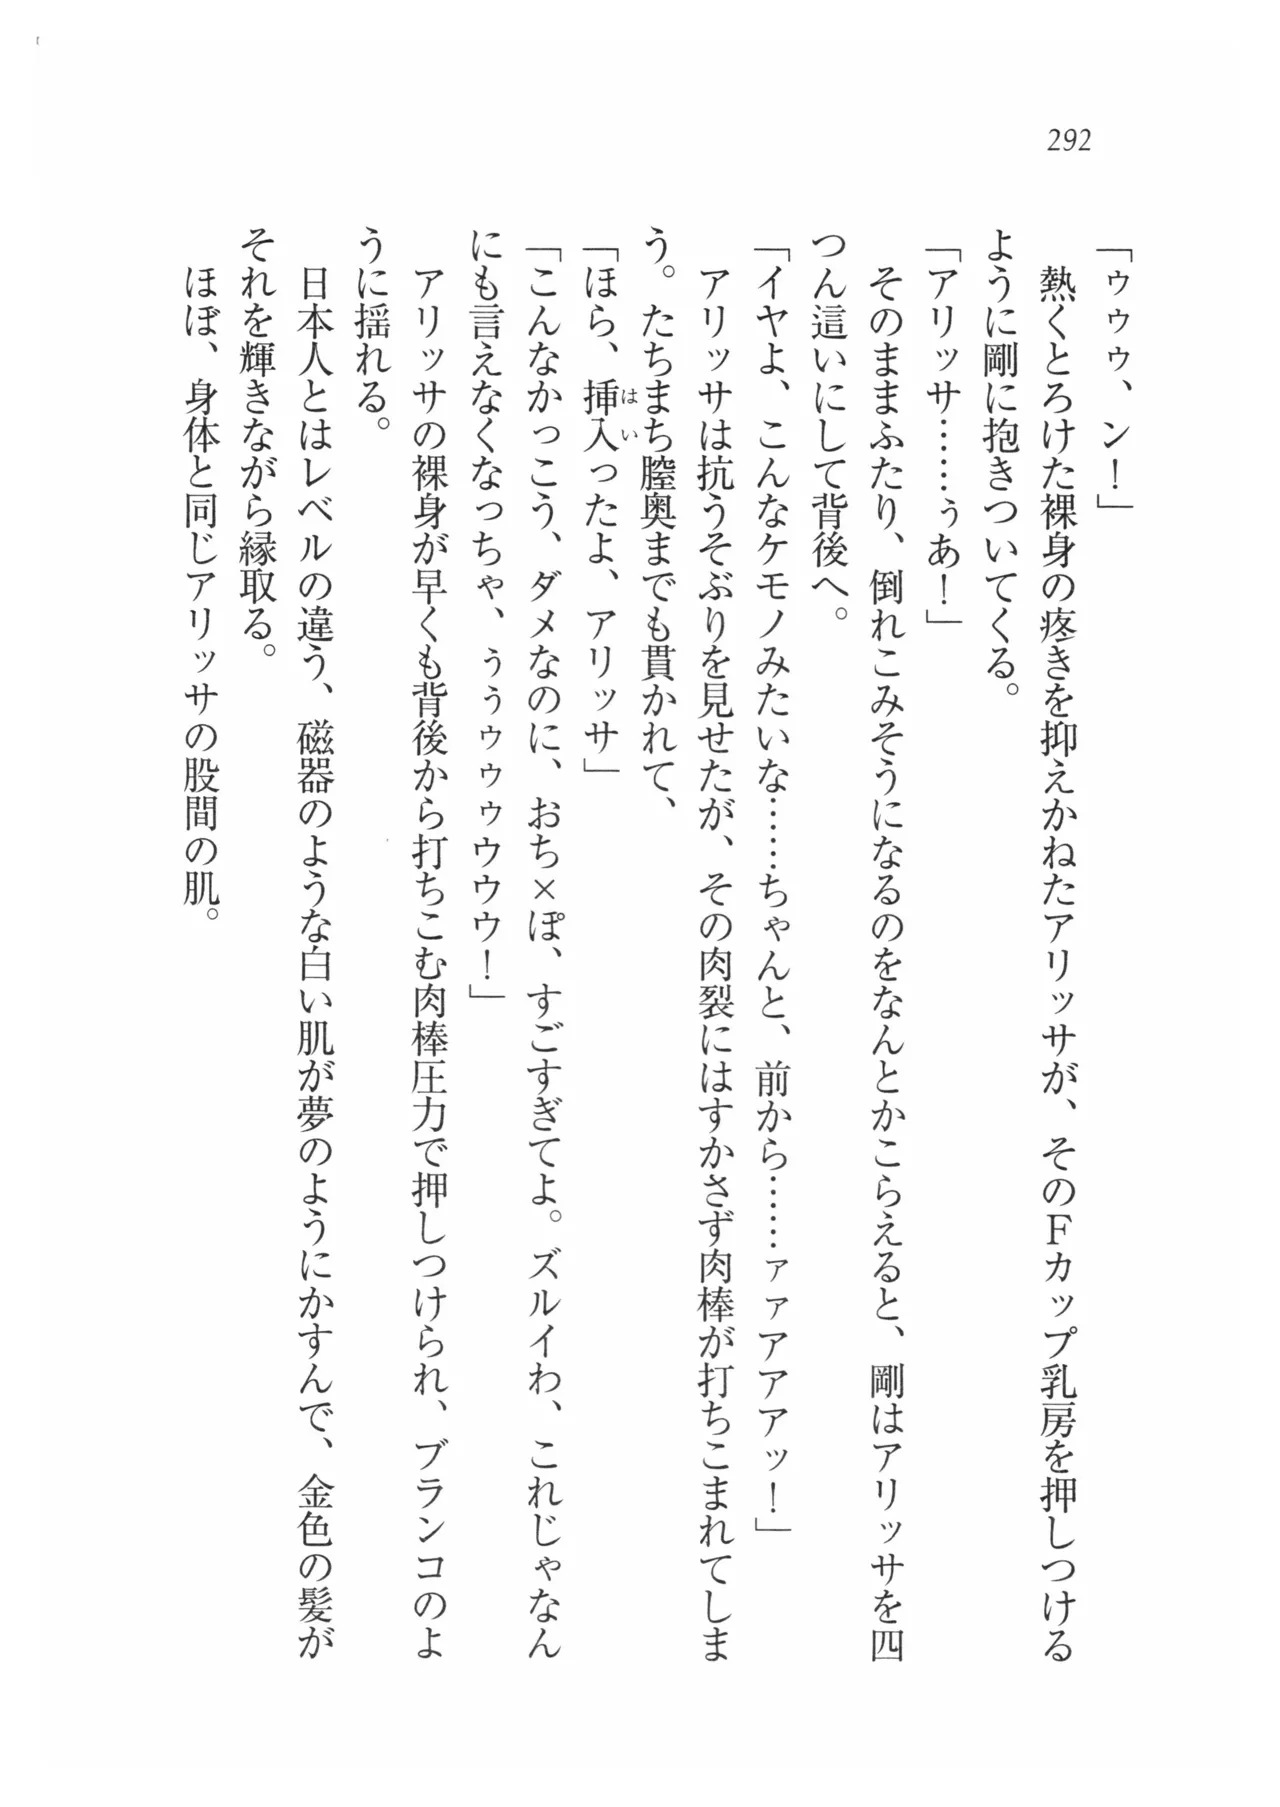 292
「ゥゥゥ、ン！」
熱くとろけた裸身の疼きを抑えかねたアリッサが、そのＦカップ乳房を押しつける
ように剛に抱きついてくる。
「アリッサ……ぅあ！」
そのままふたり、倒れこみそうになるのをなんとかこらえると、剛はアリッサを四
つん這いにして背後へ。
「イヤよ、こんなケモノみたいな……ちゃんと、前から……ァァアアアッ！」
アリッサは抗うそぶりを見せたが、その肉裂にはすかさず肉棒が打ちこまれてしま
う。たちまち膣奥までも貫かれて、
「ほら、挿入ったよ、アリッサ」
はい
「こんなかっこう、ダメなのに、おち×ぽ、すごすぎてよ。ズルイわ、これじゃなん
にも言えなくなっちゃ、ぅぅゥゥゥウウウ！」
アリッサの裸身が早くも背後から打ちこむ肉棒圧力で押しつけられ、ブランコのよ
うに揺れる。
日本人とはレベルの違う、磁器のような白い肌が夢のようにかすんで、金色の髪が
それを輝きながら縁取る。
ほぼ、身体と同じアリッサの股間の肌。